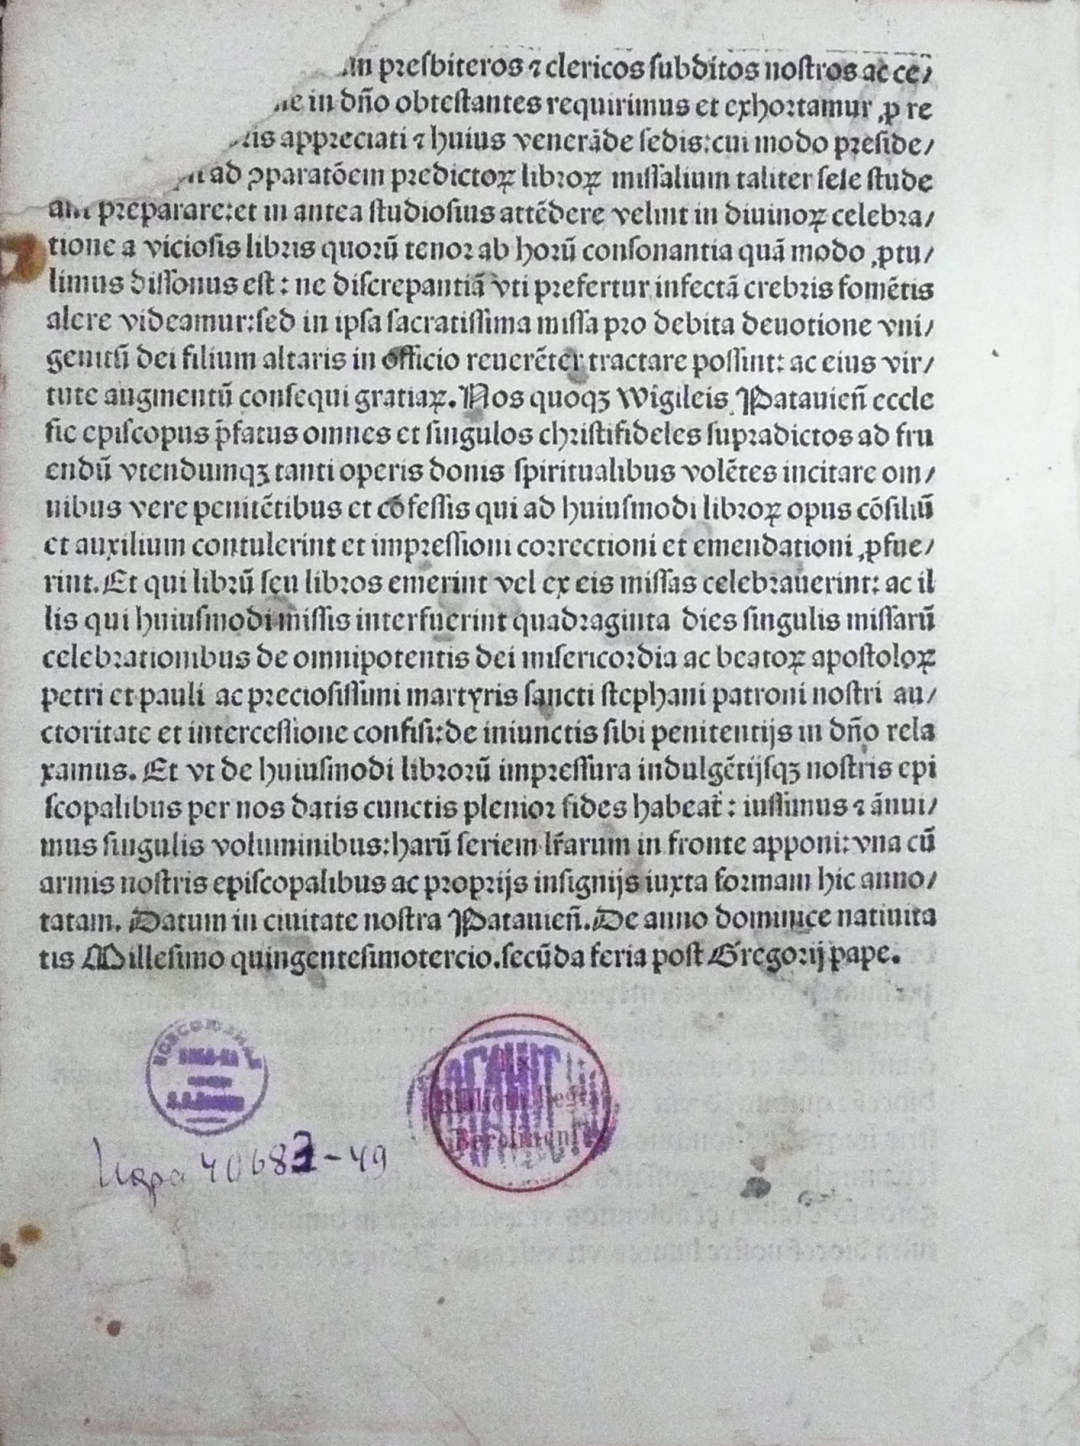 presbiteros ⁊ clericos subditos nostros ac ce/
in dn̄o obtestantes requirimus et exhortamur ꝓ re
appreciati ⁊ huius venerāde sedis: cui modo preside/
ad ꝯparatōem predictoꝝ libroꝝ missalium taliter sese stude
ant preparare: et in antea studiosius attēdere velint in diuinoꝝ celebra/
tione a viciosis libris quorū tenor ab horū consonantia quā modo ꝓtu/
limus dissonus est: ne discrepantiā vti prefertur infectā crebris fomētis
alere videamur: sed in ipsa sacratissima missa pro debita deuotione vni/
genitū dei filium altaris in officio reuerēter tractare possint: ac eius vir/
tute augmentū consequi gratiaꝝ. Nos quoqꝫ Wigileis Patauien̄ eccle
sie episcopus p̄fatus omnes et singulos christifideles supradictos ad fru
endū vtendumqꝫ tanti operis donis spiritualibus volētes incitare om/
nibus vere penitētibus et cōfessis qui ad huiusmodi libroꝝ opus cōsiliū
et auxilium contulerint et impressioni correctioni et emendationi ꝓfue/
rint. Et qui librū seu libros emerint vel ex eis missas celebrauerint: ac il
lis qui huiusmodi missis interfuerint quadraginta dies singulis missarū
celebrationibus de omnipotentis dei misericordia ac beatoꝝ apostoloꝝ
petri et pauli ac preciosissimi martyris sancti stephani patroni nostri au/
ctoritate et intercessione confisi: de iniunctis sibi penitentijs in dn̄o rela
xamus. Et vt de huiusmodi librorū impressura indulgētijsqꝫ nostris epi
scopalibus per nos datis cunctis plenior fides habeat̄: iussimus ⁊ ānui/
mus singulis voluminibus: harū seriem lr̄arum in fronte apponi: vna cū
armis nostris episcopalibus ac proprijs insignijs iuxta formam hic anno/
tatam. Datum in ciuitate nostra Patauien̄. De anno dominice natiuita
tis Millesimo quingentesimotercio. secūda feria post Gregorij pape.
Ex
Biblioth. Regia
Berolinensi
40682-49